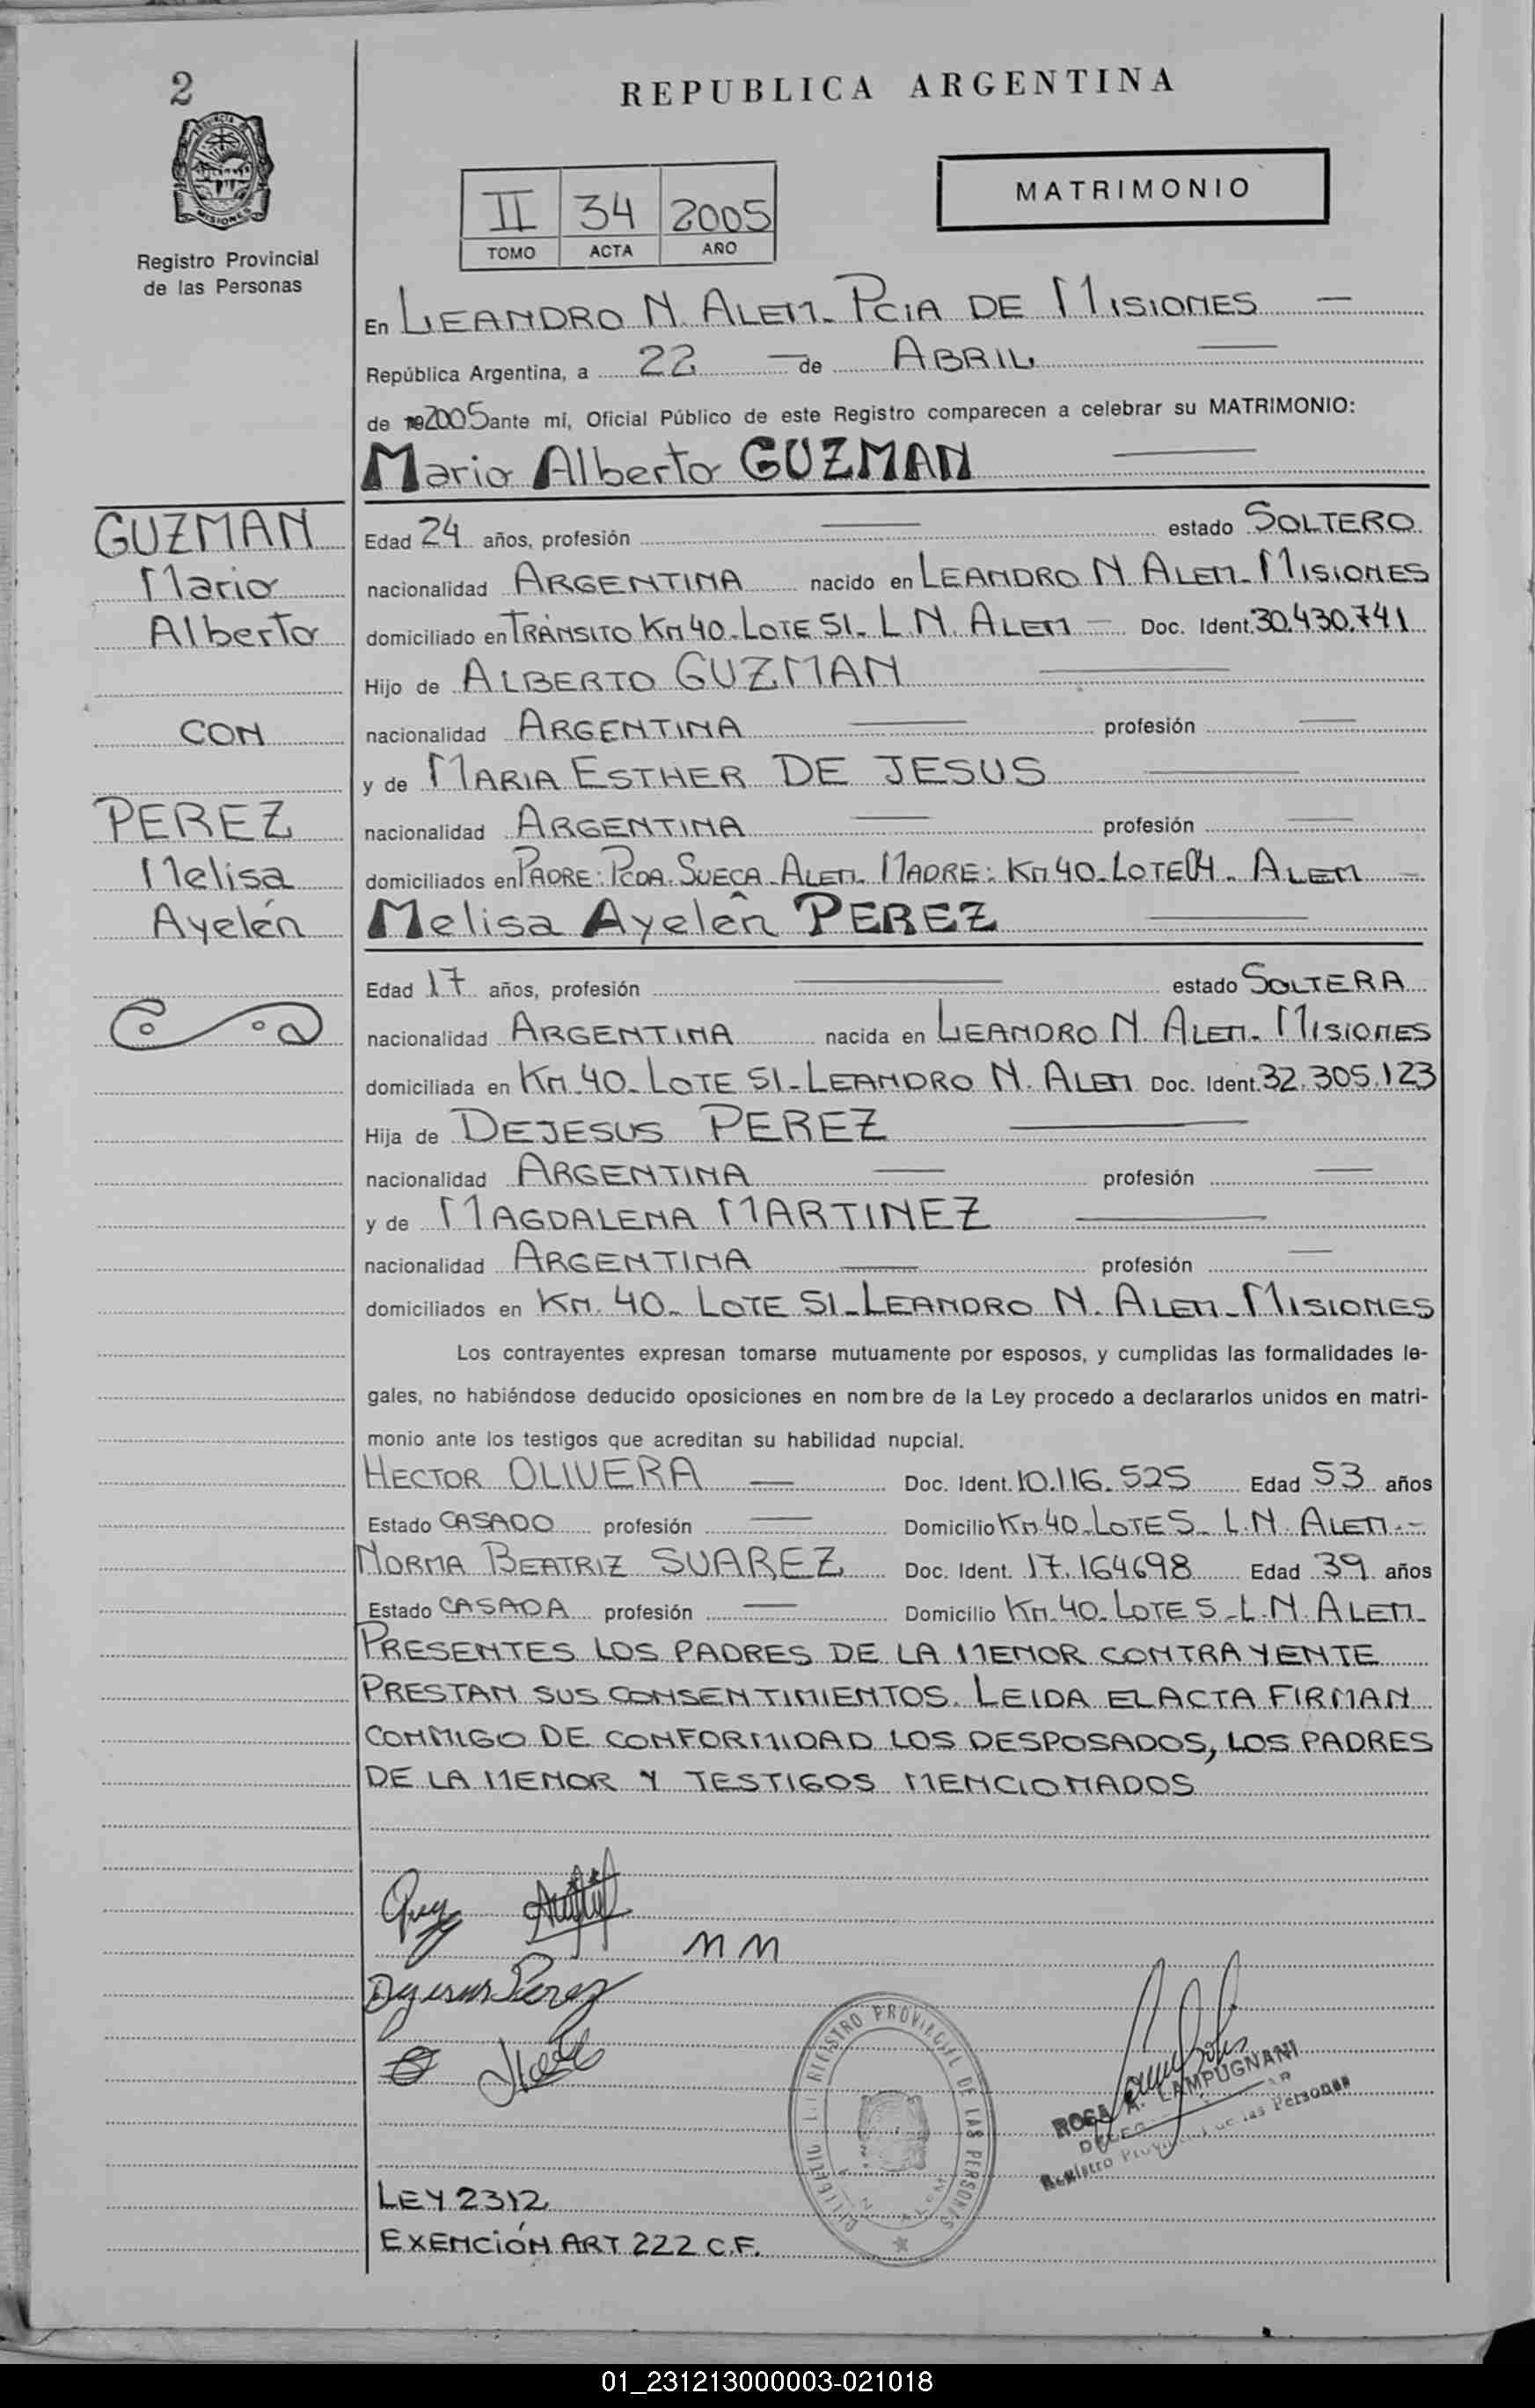 2
REPUBLICA ARGENTINA
PROVINCIA DE
MISIONES
Registro Provincial
de las Personas
II 34 2005
TOMO ACTA AÑO
MATRIMONIO
En LEANDRO N. ALEM - PCIA DE MISIONES —
República Argentina, a 22 — de ABRIL —
de 192005 ante mí, Oficial Público de este Registro comparecen a celebrar su MATRIMONIO:
Mario Alberto GUZMAN —
GUZMAN
Mario
Alberto
CON
PEREZ
Melisa
Ayelén
Edad 24 años, profesión — estado SOLTERO
nacionalidad ARGENTINA nacido en LEANDRO N ALEM - MISIONES
domiciliado en TRANSITO KM 40 - LOTE 51 - L.N. ALEM — Doc. Ident. 30.430.741
Hijo de ALBERTO GUZMAN —
nacionalidad ARGENTINA — profesión —
y de MARIA ESTHER DE JESUS —
nacionalidad ARGENTINA — profesión —
domiciliados en PADRE: PCDA. SUECA - ALEM - MADRE: KM 40 - ALEM —
Melisa Ayelén PEREZ —
Edad 17 años, profesión — estado SOLTERA
nacionalidad ARGENTINA nacida en LEANDRO N. ALEM - MISIONES
domiciliada en KM. 40 - LOTE 51 - LEANDRO N. ALEM Doc. Ident. 32.305.123
Hija de DEJESUS PEREZ —
nacionalidad ARGENTINA — profesión —
y de MAGDALENA MARTINEZ —
nacionalidad ARGENTINA — profesión —
domiciliados en KM. 40 - LOTE 51 - LEANDRO N. ALEM - MISIONES
Los contrayentes expresan tomarse mutuamente por esposos, y cumplidas las formalidades le-
gales, no habiéndose deducido oposiciones en nombre de la Ley procedo a declararlos unidos en matri-
monio ante los testigos que acreditan su habilidad nupcial.
HECTOR OLIVERA — Doc. Ident. 10.116.525 Edad 53 años
Estado CASADO profesión — Domicilio KM 40 - LOTE 5 - L.N. ALEM -
NORMA BEATRIZ SUAREZ Doc. Ident. 17.164698 Edad 39 años
Estado CASADA profesión — Domicilio KM. 40 - LOTE 5 - L.N. ALEM
PRESENTES LOS PADRES DE LA MENOR CONTRAYENTE
PRESTAN SUS CONSENTIMIENTOS. LEIDA EL ACTA FIRMAN
CONMIGO DE CONFORMIDAD LOS DESPOSADOS, LOS PADRES
DE LA MENOR Y TESTIGOS MENCIONADOS
M M
Dejesus Perez
REGISTRO PROVINCIAL DE LAS PERSONAS
ROSA A. LAMPUGNANI
Registro Provincial de las Personas
LEY 2312
EXENCIÓN ART 222 C.F.
01_231213000003-021018